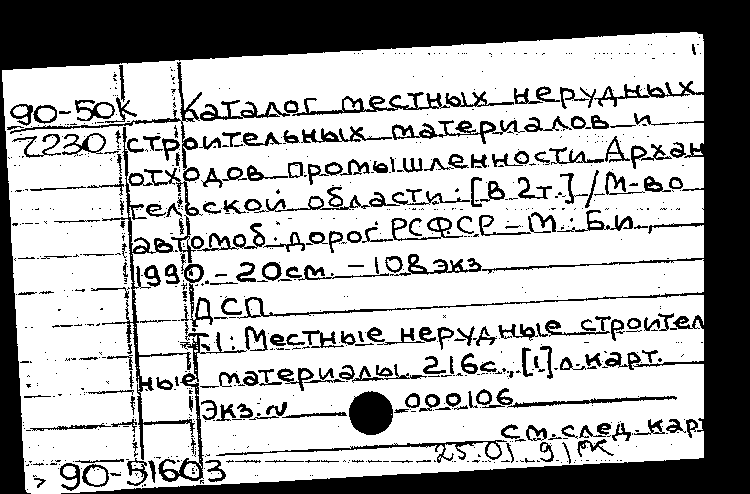 90-50К Каталог местных нерудных
7230 строительных материалов и
отходов промышленности Архан
гельской области: [В 2т.] / М-во
автомоб. дорог РСФСР - М.: Б.и.,
1990. - 20см. - 108 экз
ДСП.
Т.1: Местные нерудные строител
ные материалы. 216с., [1] л. карт.
Экз. № 000106
см. след. кар
25.01.91
90-51603